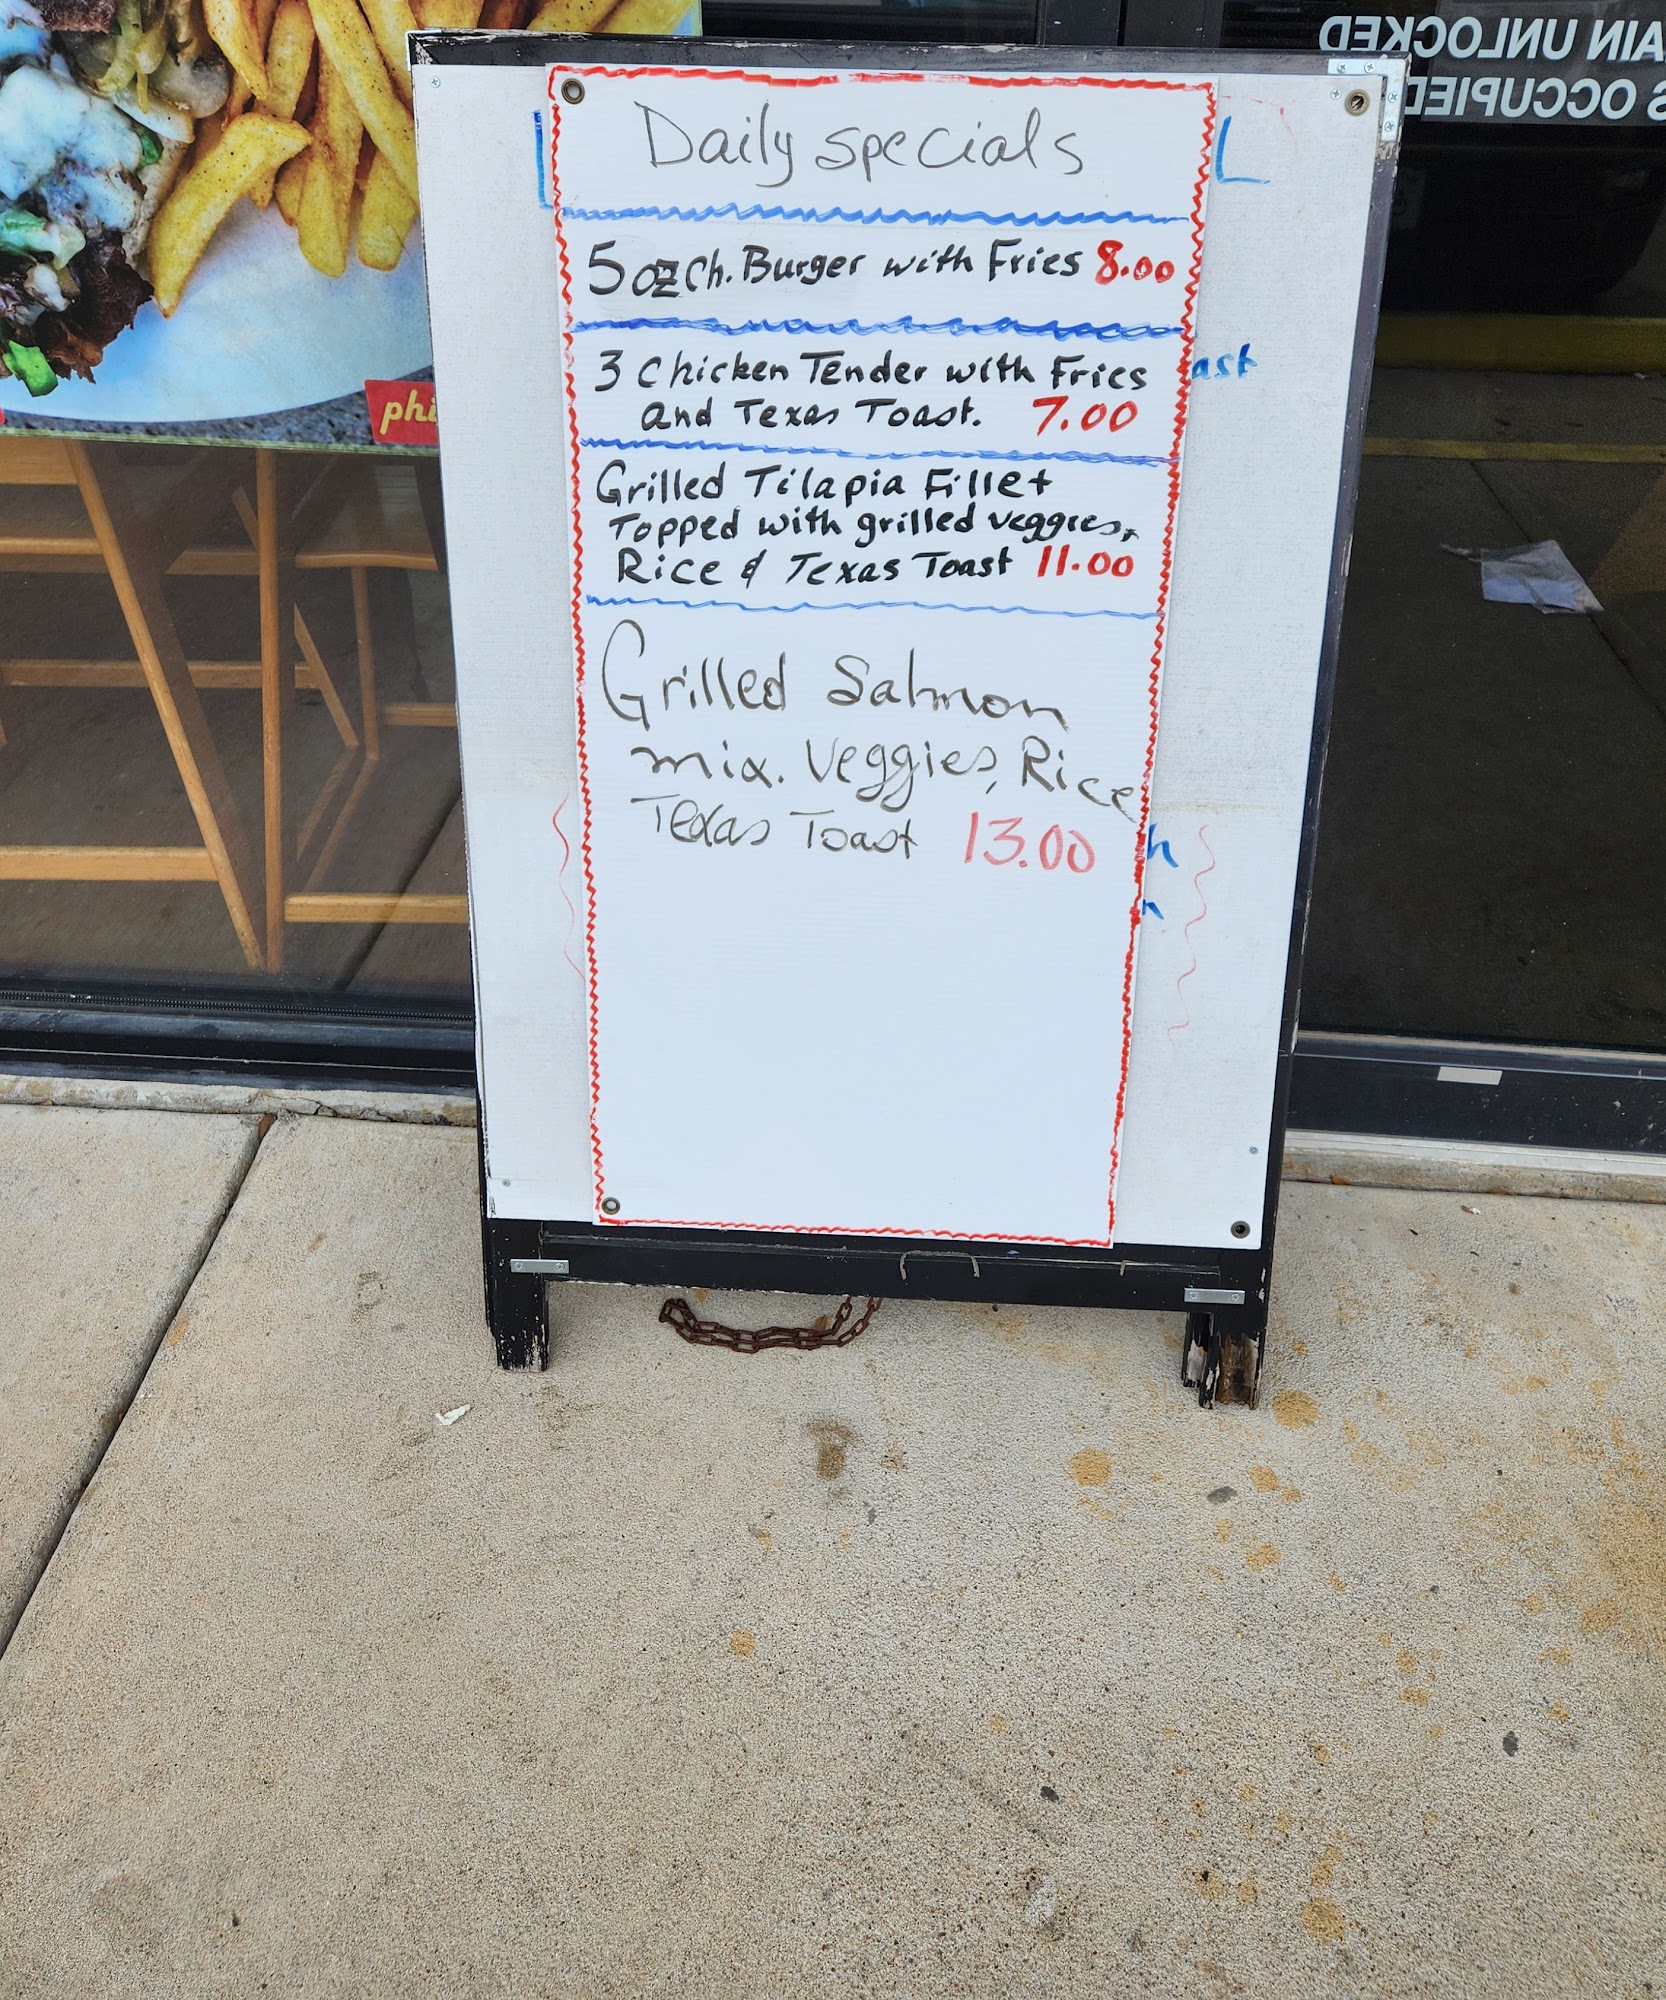 AIN UNLOCKED
S OCCUPIED
Daily specials
L
5 oz Ch. Burger with Fries 8.00
3 Chicken Tender with Fries
and Texas Toast. 7.00
ast
phi
Grilled Tilapia Fillet
Topped with grilled veggies,
Rice & Texas Toast 11.00
Grilled Salmon
mix. Veggies, Rice
Texas Toast 13.00
h
n